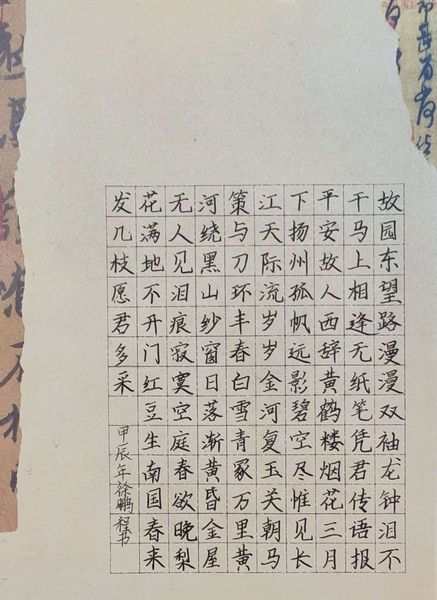 故园东望路漫漫双袖龙钟泪不
干马上相逢无纸笔凭君传语报
平安故人西辞黄鹤楼烟花三月
下扬州孤帆远影碧空尽惟见长
江天际流岁岁金河复玉关朝马
策与刀环丰春白雪青冢万里黄
河绕黑山纱窗日落渐黄昏金屋
无人见泪痕寂寞空庭春欲晚梨
花满地不开门红豆生南国春来
发几枝愿君多采
甲辰年徐鹏程书